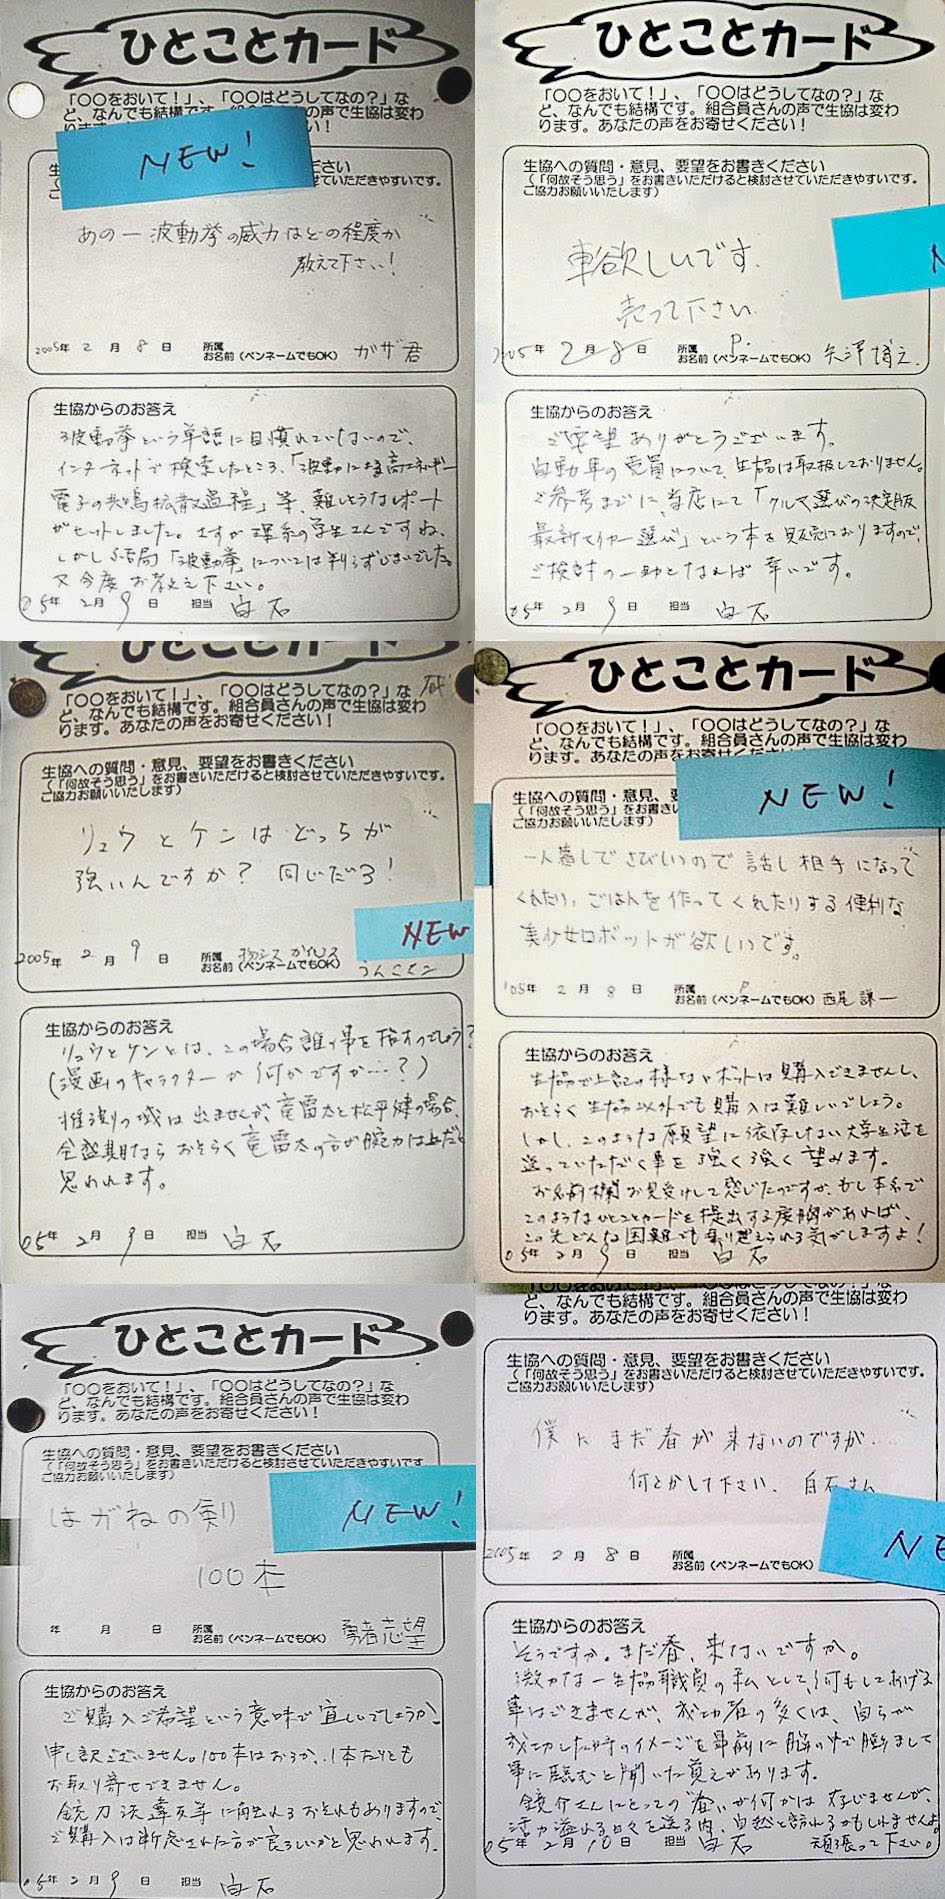 ひとことカード
「〇〇をおいて!」、「〇〇はどうしてなの?」な
ど、なんでも結構です。組合員さんの声で生協は変わ
NEW!
ください
せていただきやすいです。
あのー波動拳の威力はどの程度か
教えて下さい!
2005年 2月 8日 所属
お名前(ペンネームでもOK) ガザ君
生協からのお答え
波動拳という単語に目慣れていないので、
インターネットで検索したところ、「波動による高エネルギー
電子の共鳴拡散過程」等、難しそうなレポート
がヒットしました。さすが理系の学生さんですね。
しかし結局「波動拳」については判らずじまいでした。
又今度お教え下さい。
05年 2月 9日 担当 白石
ひとことカード
「〇〇をおいて!」、「〇〇はどうしてなの?」な
ど、なんでも結構です。組合員さんの声で生協は変わ
ります。あなたの声をお寄せください!
生協への質問・意見、要望をお書きください
(「何故そう思う」をお書きいただけると検討させていただきやすいです。
ご協力お願いいたします)
車欲しいです。
売って下さい
2005年 2月 8日 所属 P.
お名前(ペンネームでもOK) 矢澤博之
生協からのお答え
ご要望ありがとうございます。
自動車の電員について、生協は取扱しておりません。
ご参考までに、当店にて「クルマ選びの決定版
最新マイカー選び」という本を販売しておりますので、
ご検討の一助となれば幸いです。
05年 2月 9日 担当 白石
「〇〇をおいて!」、「〇〇はどうしてなの?」な
ど、なんでも結構です。組合員さんの声で生協は変わ
ります。あなたの声をお寄せください!
生協への質問・意見、要望をお書きください
(「何故そう思う」をお書きいただけると検討させていただきやすいです。
ご協力お願いいたします)
リュウとケンはどっちが
強いんですか? 同じだろ!
NEW
2005年 2月 9日 所属
お名前(ペンネームでもOK)
生協からのお答え
リュウとケンとは、この場合誰の事を指すのでしょう?
(漫画のキャラクターか何かですか…?)
推測の域は出ませんが、竜雷太と松平健の場合、
全盛期ならおそらく竜雷太の方が腕力は上だと
思われます。
05年 2月 9日 担当 白石
ひとことカード
「〇〇をおいて!」、「〇〇はどうしてなの?」な
ど、なんでも結構です。組合員さんの声で生協は変わ
ります。あなたの声をお寄せくださ
NEW!
生協への質問・意見、
(「何故そう思う」をお書き
ご協力お願いいたします)
一人暮しでさびしいので話し相手になって
くれたり、ごはんを作ってくれたりする便利な
美少女ロボットが欲しいです。
'05年 2月 8日 所属 P
お名前(ペンネームでもOK) 西尾謙一
生協からのお答え
生協で上記の様なロボットは購入できませんし、
おそらく生協以外でも購入は難しいでしょう。
しかし、このような願望に依存しない大学生活を
送っていただく事を強く強く望みます。
お名前欄お見受けして感じたのですが、もし本名で
このようなひとことカードを提出する度胸があれば、
この先どんな困難でも乗り越えられる気がしますよ!
05年 2月 9日 担当 白石
ひとことカード
「〇〇をおいて!」、「〇〇はどうしてなの?」な
ど、なんでも結構です。組合員さんの声で生協は変わ
ります。あなたの声をお寄せください!
生協への質問・意見、要望をお書きください
(「何故そう思う」をお書きいただけると検討させていただきやすいです
ご協力お願いいたします)
NEW!
はがねの剣
100本
年 月 日 所属
お名前(ペンネームでもOK) 勇者志望
生協からのお答え
ご購入ご希望という意味で宜しいでしょうか?
申し訳ございません。100本はおろか、1本たりとも
お取り寄せできません。
銃刀法違反等に触れるおそれもありますので、
ご購入は断念された方が良ろしいかと思われます。
05年 2月 9日 担当 白石
ど、なんでも結構です。組合員さんの声で生協は変わ
ります。あなたの声をお寄せください!
生協への質問・意見、要望をお書きください
(「何故そう思う」をお書きいただけると検討させていただきやすいです。
ご協力お願いいたします)
僕にまだ春が来ないのですが…
何とかして下さい、白石さん
2005年 2月 8日 所属
お名前(ペンネームでもOK)
NE
生協からのお答え
そうですか。まだ春、来ないですか。
微力な一生協職員の私として、何もしてあげる
事はできませんが、成功者の多くは、自らが
成功した時のイメージを事前に脳の中で膨らまして
事に臨むと聞いた覚えがあります。
鏡介さんにとっての「春」が何かは存じませんが、
活力溢れる日々を送る内、自然と訪れるかもしれませんよ。
頑張って下さい。
05年 2月 10日 担当 白石